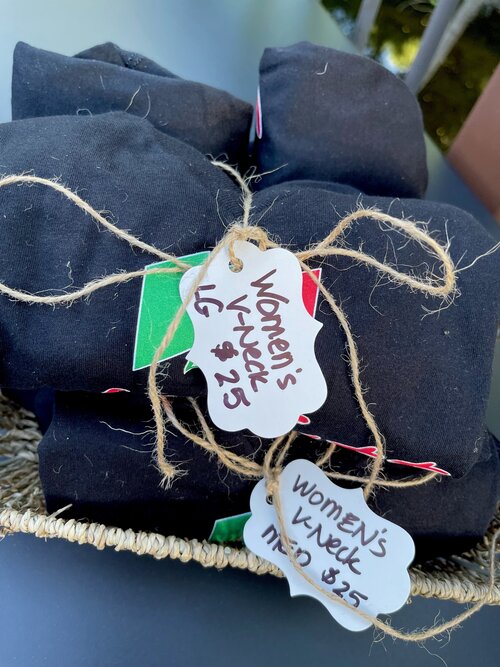 Women's
V-Neck
LG $25
WOMEN'S
V-Neck
MED $25